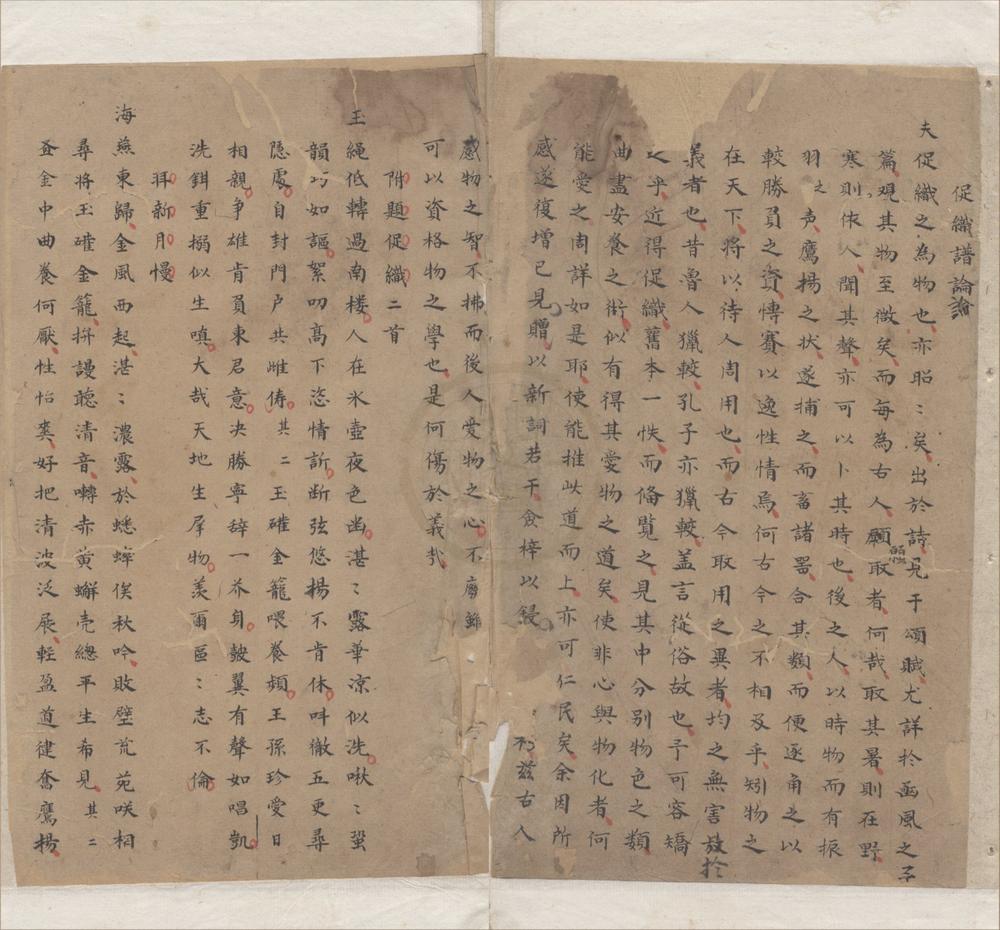 促織譜論
夫促織之為物也亦昭〻矣出於詩見于頌賦尤詳於豳風之子
篇觀其物至微矣而每為古人願取者何哉取其暑則在野
寒則依人聞其聲亦可以卜其時也後之人以時物而有振
羽之声鷹揚之状遂捕之而畜諸器合其類而便逐角之以
較勝負之資慱賽以逸性情焉何古今之不相及乎矧物之
在天下將以待人周用也而古今取用之異者均之無害於
義者也昔魯人獵較孔子亦獵較盖言從俗故也予可容矯
之乎近得促織舊本一帙而俻覧之見其中分别物色之類
曲盡安養之術似有得其愛物之道矣使非心與物化者何
能愛之周詳如是耶使能推此道而上亦可仁民矣余因所
感遂復增已見贈以新詞若干僉梓以鋟
茲古人
感物之智不拂而後人愛物之心不廢
可以資格物之學也是何傷於義哉
附題促織二首
玉繩低轉過南楼人在氷壺夜色幽湛〻露華凉似洗啾〻蛩
韻巧如謳絮叨高下恣情訴断弦悠揚不肯休呌徹五更尋
隐處自封門户共雌俦其二玉礶金籠喂養頻王孫珍愛日
相親争雄肯負東君意决勝寧辞一芥身皷翼有聲如唱凱
洗鉗重搦似生嗔大哉天地生羣物羡爾區〻志不倫
拜新月慢
海燕東歸金風西起湛〻濃露於蟋蟀俟秋吟敗壁荒苑咲相
尋將玉礶金籠拚謾聴清音囀赤黄蠏壳總平生希見其二
盆中曲養何厭性怡奕好把清波泛展軽盈道健奮鷹揚